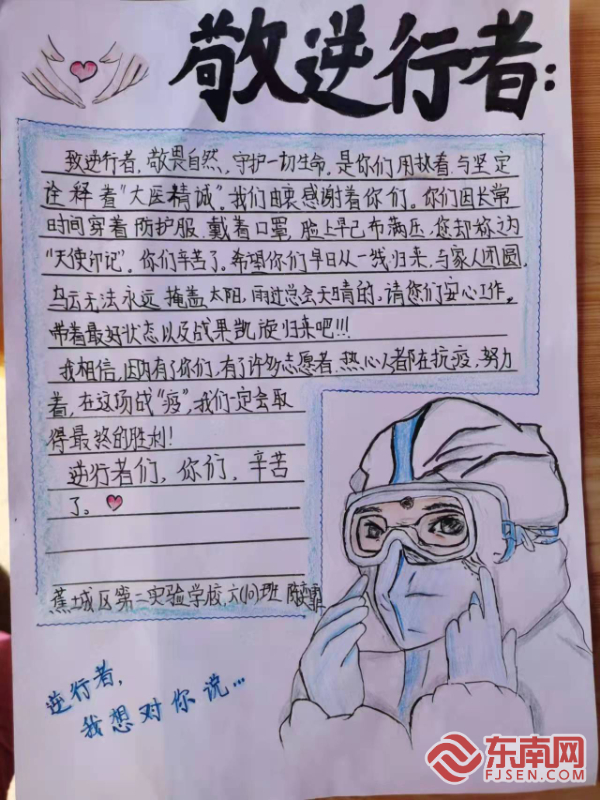 敬逆行者:
致逆行者,敬畏自然,守护一切生命,是你们用执着与坚定
诠释着“大医精诚”。我们由衷感谢着你们。你们因长常
时间穿着防护服戴着口罩,脸上早已布满压,您却称之为
“天使印记”。你们辛苦了。希望你们早日从一线归来,与家人团圆,
乌云无法永远掩盖太阳,雨过总会天晴的,请您们安心工作。
带着最好状态以及战果凯旋归来吧!!!
我相信,因为有了你们,有了许多志愿者,热心人都在抗疫,努力
着,在这场战“疫”,我们一定会取
得最终的胜利!
逆行者们,你们,辛苦
了。
蕉城区第二实验学校,六(10)班 陈
逆行者,
我想对你说...
东南网
FJSEN.COM